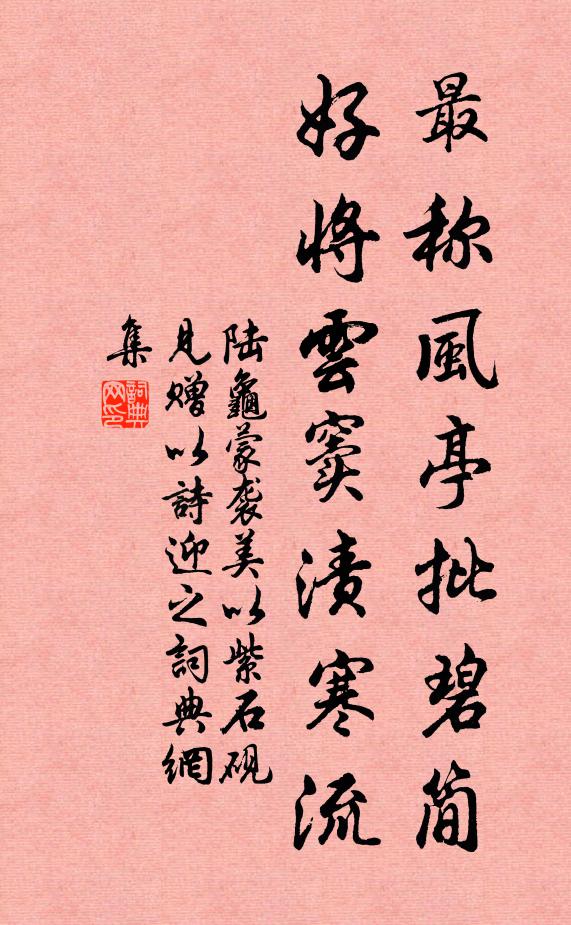 最称風亭批碧简
好將雲窦漬寒流
陆龜蒙袭美以紫石砚
見赠以詩迎之詞典網
集
詞典网印